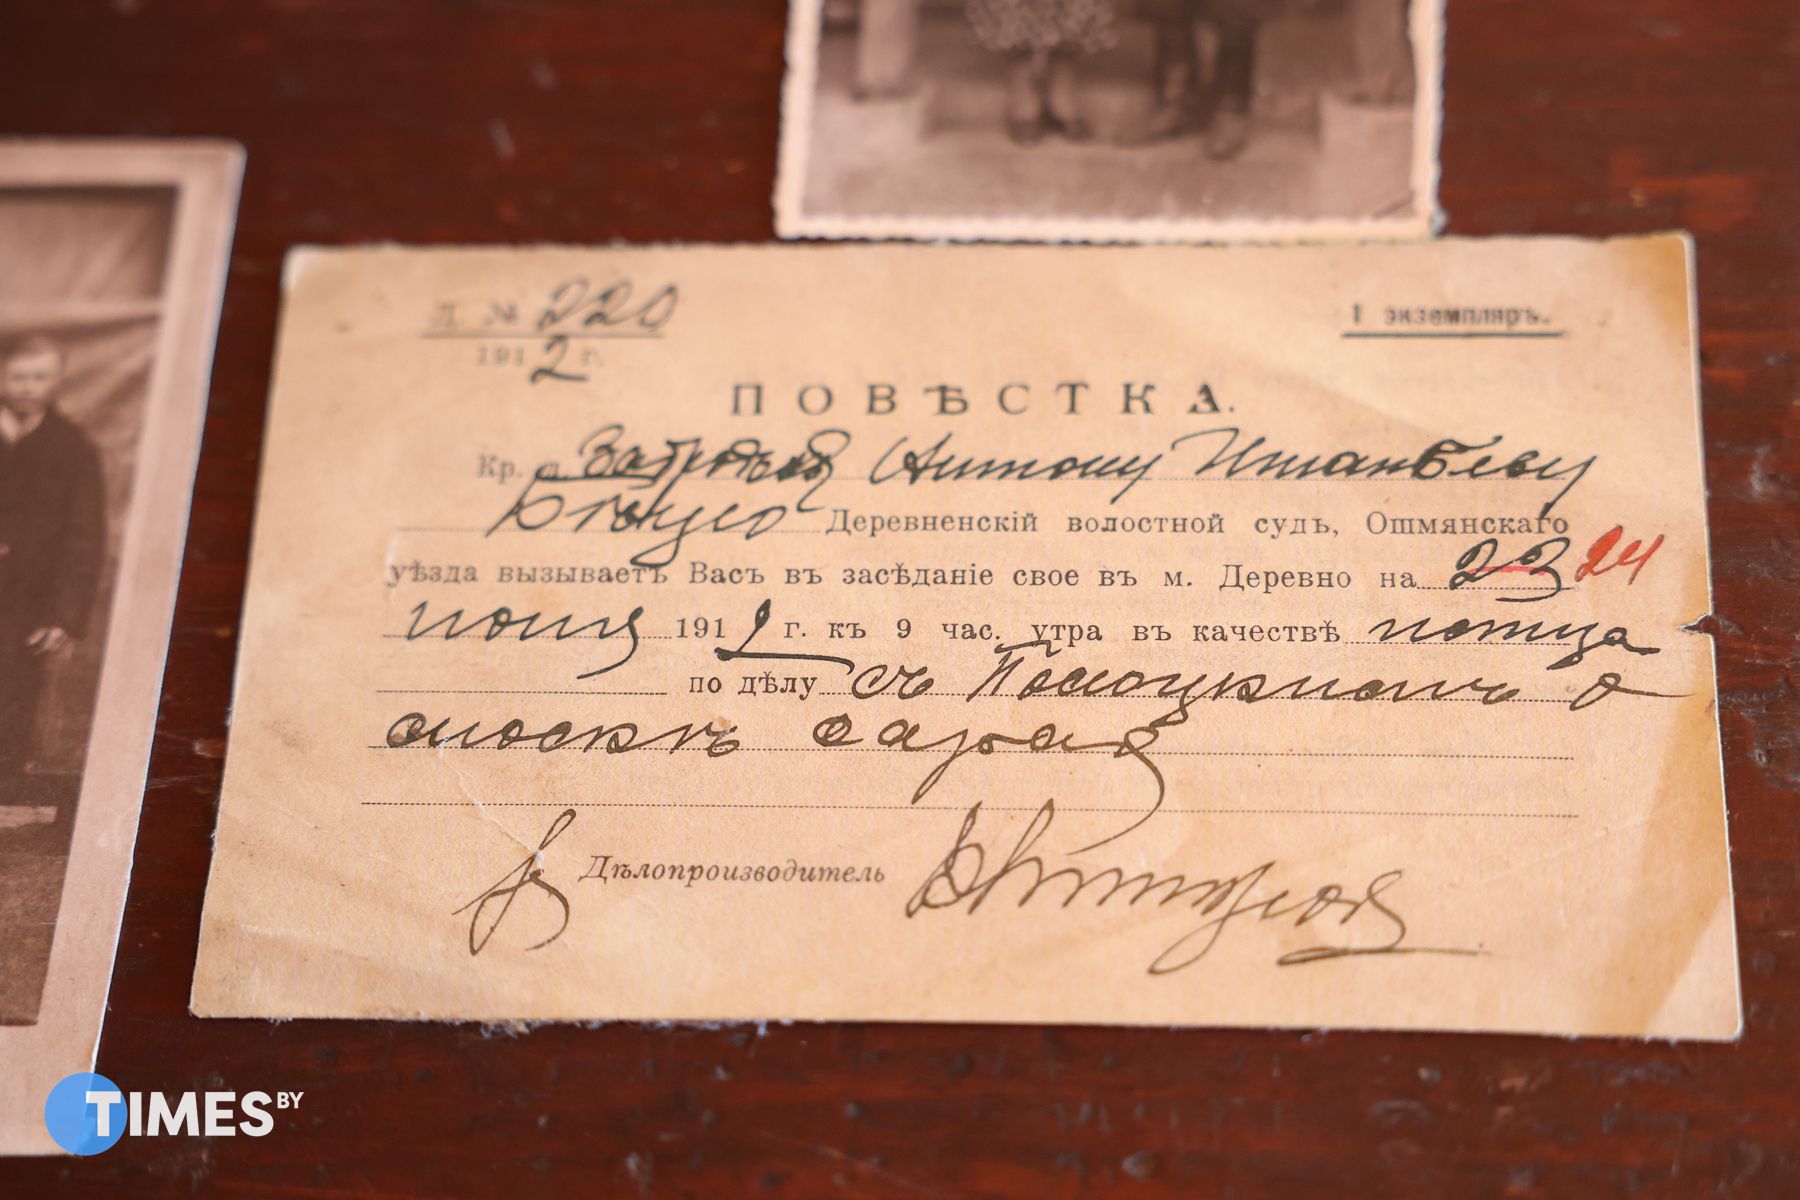 Д. № 220
1912 г.
1 экземпляръ.
ПОВѢСТКА.
Кр. д. Антону
Деревненскій волостной судъ, Ошмянскаго
уѣзда вызываетъ Васъ въ засѣданіе свое въ м. Деревно на 23 24
1912 г. къ 9 час. утра въ качествѣ истца
по дѣлу съ о
сносѣ сарая
Дѣлопроизводитель
TIMES BY